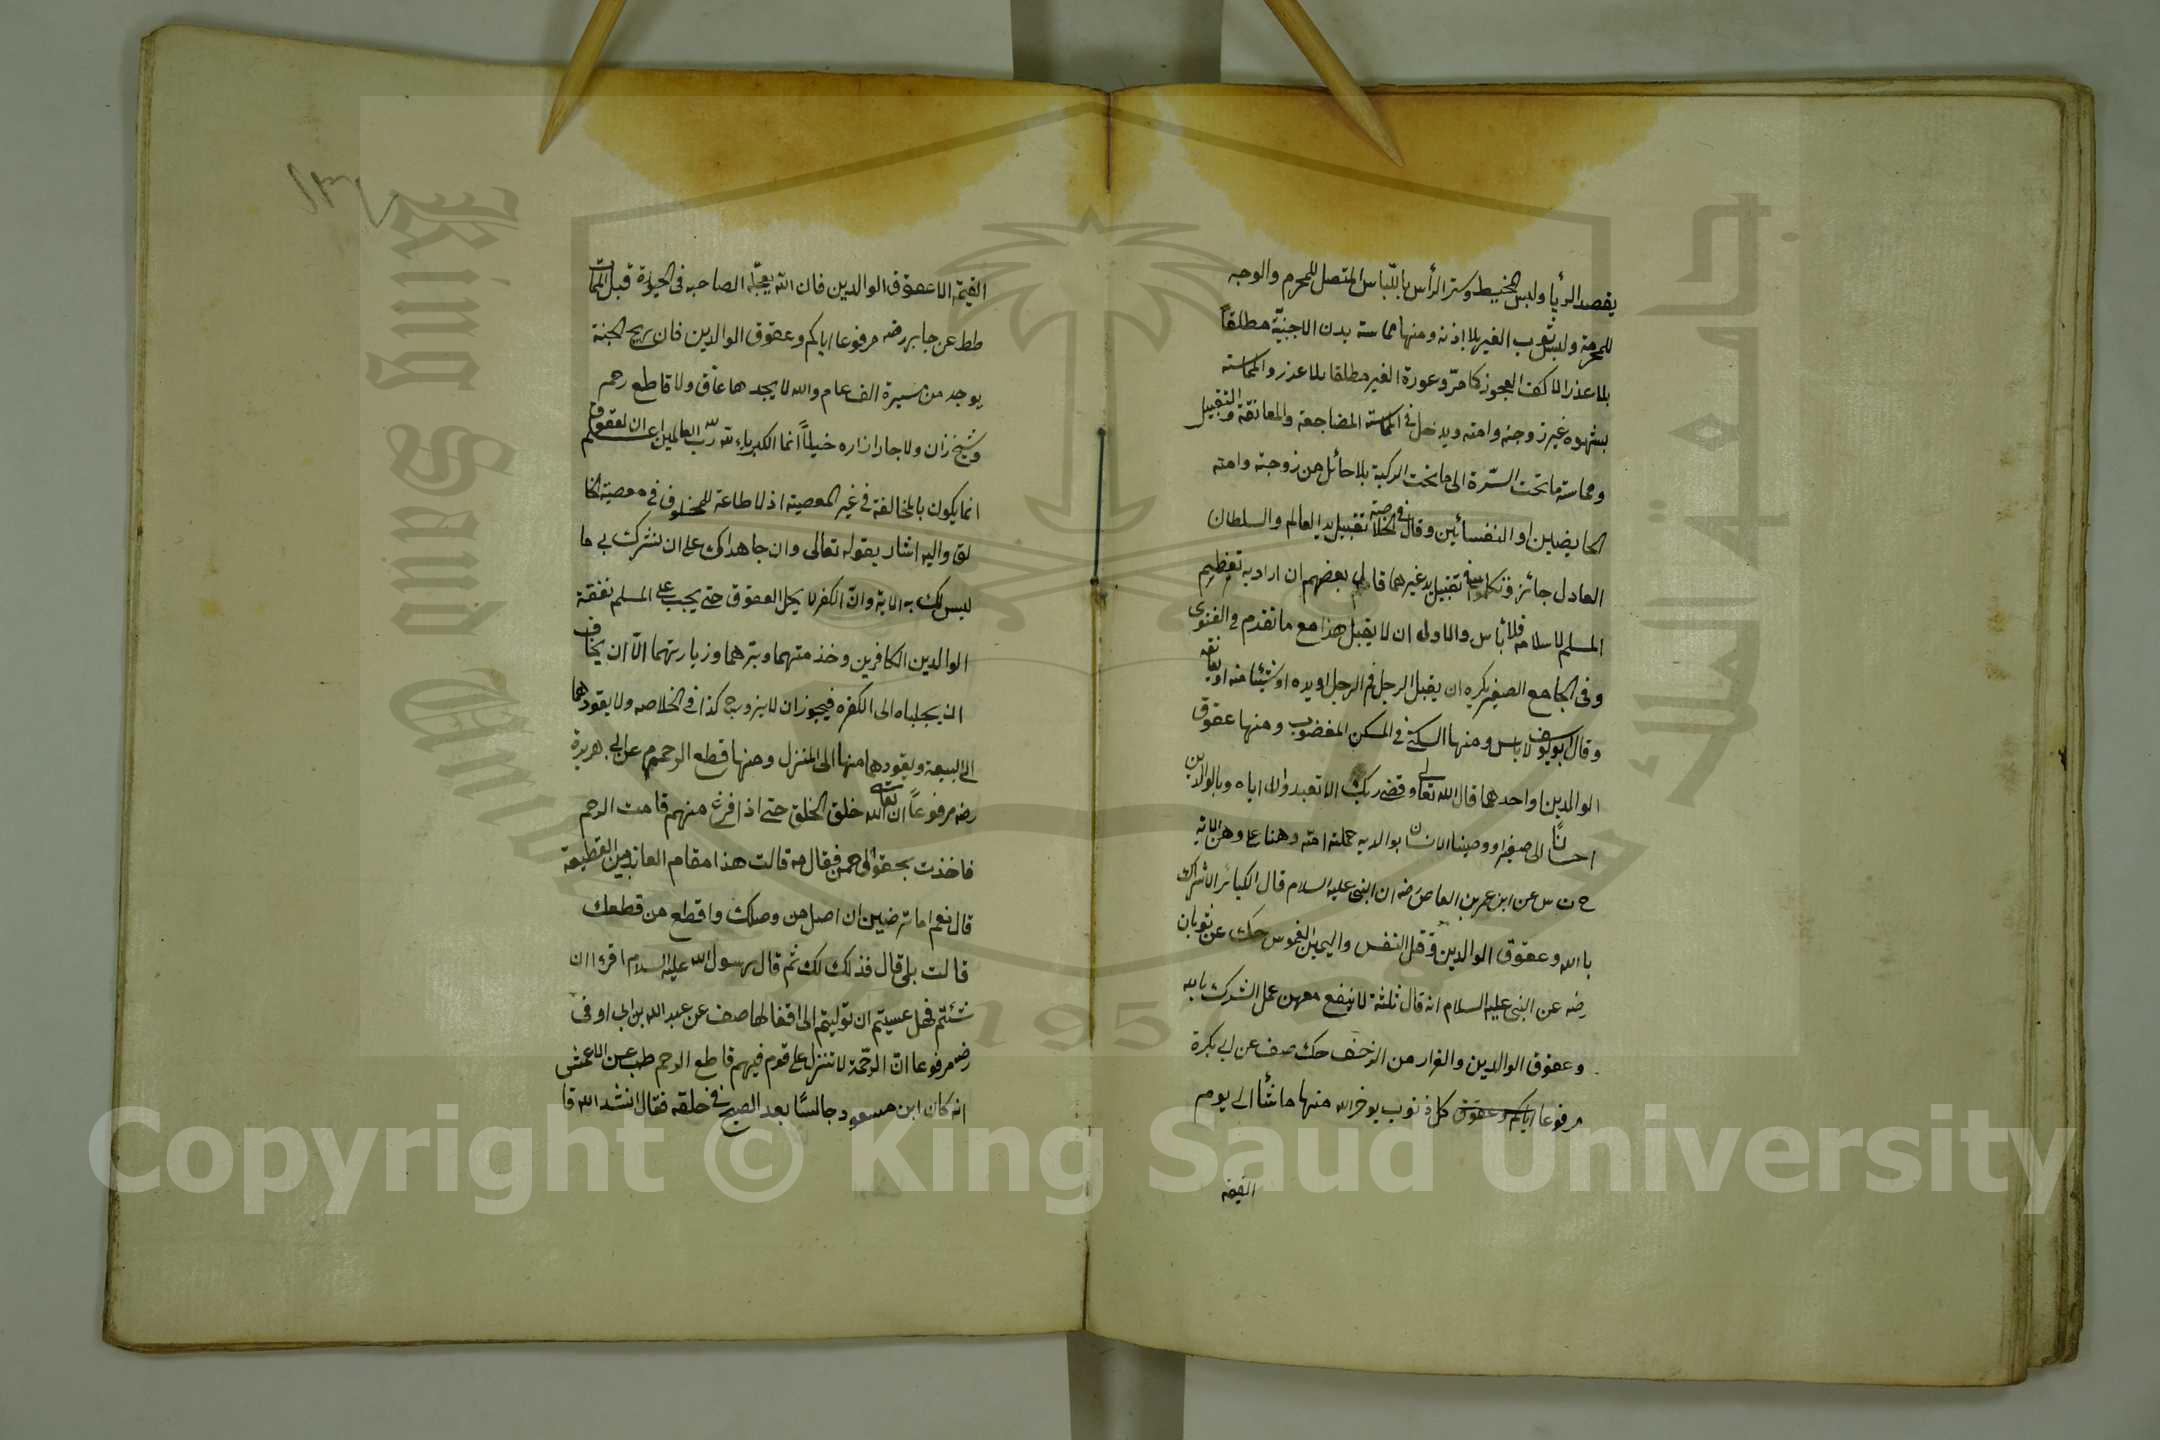 يقصد الريا ولبس المخيط وستر الرأس باللباس المتصل للمحرم والوجه
للمحرمة ولبس ثوب الغير بلا اذنه ومنها مماسة بدن الاجنبية مطلقاً
بلا عذر الا كف العجوز كما مرّ وعورة الغير مطلقا بلا عذر والمماسة
بشهوه غير زوجته وامته ويدخل في المماسة المضاجعة والمعانقة والتقبيل
ومماسة ما تحت السّرة الى ما تحت الركبة بلا حائل من زوجته وامته
الحايضين او النفسائين وقال في الخلاصة تقبيل يد العالم والسلطان
العادل جائز وتكلموا في تقبيل يد غيرهما قال بعضهم ان اراد به تعظيم
المسلم لاسلامه فلا بأس والاولى ان لا يقبل هذا مع ما تقدم في الفتوى
وفي الجامع الصغير يكره ان يقبل الرجل فم الرجل او يده او شيئا منه او يعانقه
وقال ابو يوسف لا باس ومنها السكنى في المسكن المغضوب ومنها عقوق
الوالدين او احدهما قال الله تعالى وقضى ربك الا تعبدوا الا اياه وبالوالدين
احسانًا الى صغيرا ووصينا الانسان بوالديه حملته امّه وهنا على وهن الاية
خ ت س عن ابن عمر بن العاص رضه ان النبي عليه السلام قال الكبائر الاشراك
بالله وعقوق الوالدين وقتل النفس واليمين الغموس حك عن ثوبان
رضه عن النبي عليه السلام انه قال ثلثة لا ينفع معهن عمل الشرك بالله
وعقوق الوالدين والفرار من الزحف حك صف عن ابي بكرة
مرفوعا اياكم وعقوق كل ذنوب يوخر الله منها ما شأ الى يوم
القيمة
القيمة الا عقوق الوالدين فان الله يعجّله لصاحبه في الحيوة قبل الممات
طط عن جابر رضه مرفوعا اياكم وعقوق الوالدين فان ريح الجنة
يوجد من مسيرة الف عام والله لا يجدها عاق ولا قاطع رحم
وشيخ زان ولا جار ازاره خيلاً انما الكبرياء لله ربّ العالمين اعلم ان العقوق
انما يكون بالمخالفة في غير المعصية اذ لا طاعة للمخلوق في معصية الخا
لق واليه اشار بقوله تعالى وان جاهداك على ان تشرك بي ما
ليس لك به الاية وانّ الكفر لا يحل العقوق حتى يجب على المسلم نفقة
الوالدين الكافرين وخذمتهما وبترهما وزيارتهما الّا ان يخاف
ان يجلباه الى الكفره فيجوز ان لا يزور ح كذا في الخلاصه ولا يقودهما
الى البيعة ويقودهما منها الى المنزل ومنها قطع الرحم م عن ابي هريرة
رضه مرفوعاً ان الله تعالى خلق الخلق حتى اذا فرغ منهم قامت الرحم
فاخذت بحقو الرحمن فقال مه قالت هذا مقام العائذ من القطيعة
قال نعم اما ترضين ان اصل من وصلك واقطع من قطعك
قالت بلى قال فذلك لك ثم قال رسول الله عليه السلام اقرءا ان
شئتم فهل عسيتم ان توليتم الى اقفالها صف عن عبد الله بن ابي اوفى
رضه مرفوعا انّ الرحمة لا تنزل على قوم فيهم قاطع الرحم طب عن الاعمش
انه كان ابن مسعود جالسًا بعد الصبح في حلقه فقال انشد الله قا
King Saud University
1957
Copyright © King Saud University